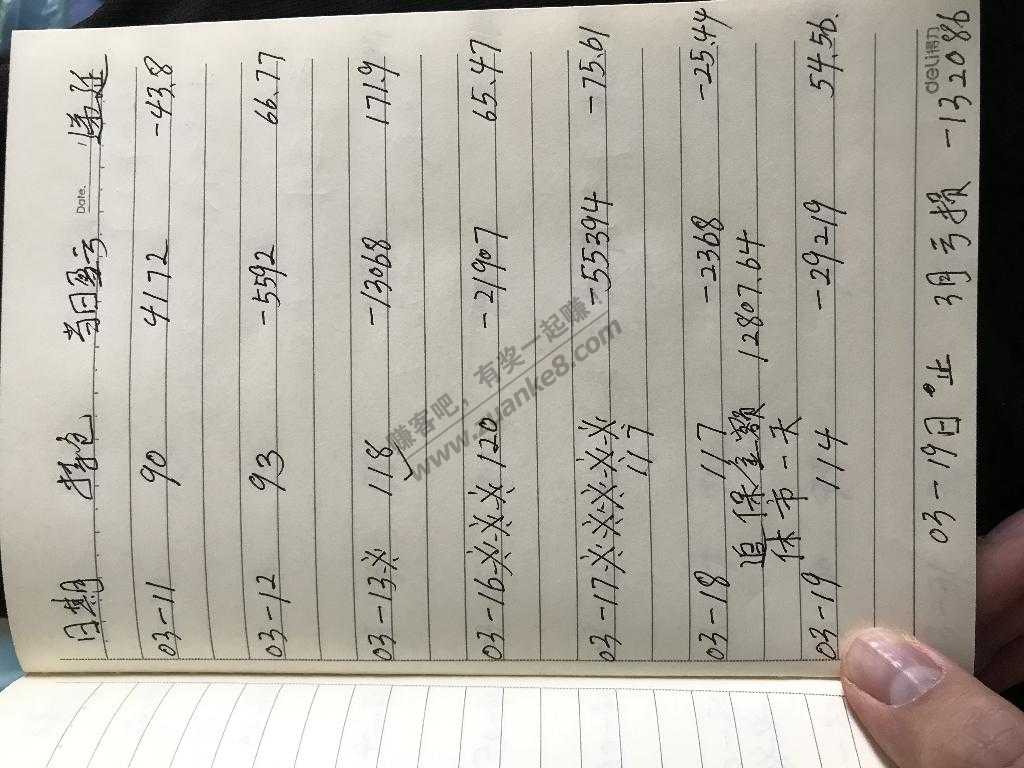 Date.
日期 持仓 当日盈亏 递延
03-11 90 4172 -43.8
03-12 93 -5592 66.77
03-13※ 118 -13068 171.9
03-16※※※※ 120 -21907 65.47
03-17※※※※※ -55394 -75.61
117
03-18 117 -2368 -25.44
追保金额 12807.64
休市一天
03-19 114 -29219 54.56.
03-19日止 3月亏损 -132086
deli得力
赚客吧,有奖一起赚!
www.zuanke8.com